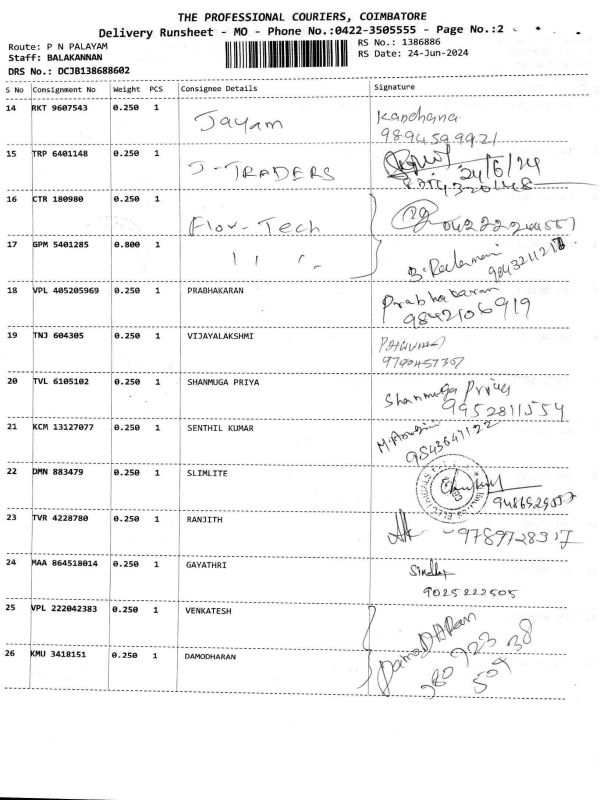 THE PROFESSIONAL COURIERS, COIMBATORE
Delivery Runsheet - MO - Phone No.:0422-3505555 - Page No.:2
Route: P N PALAYAM
RS No.: 1386886
Staff: BALAKANNAN
RS Date: 24-Jun-2024
DRS No.: DCJB138688602
S No Consignment No Weight PCS Consignee Details Signature
14 RKT 9607543 0.250 1 Jayam Kandhana
9894599921
15 TRP 6401148 0.250 1 J-TRADERS 24/6/24
16 CTR 180980 0.250 1 Flow-Tech
17 GPM 5401285 0.800 1
18 VPL 405205969 0.250 1 PRABHAKARAN Prabhakaran
9842106919
19 TNJ 604305 0.250 1 VIJAYALAKSHMI
9790457307
20 TVL 6105102 0.250 1 SHANMUGA PRIYA Shanmuga Priya
9952811554
21 KCM 13127077 0.250 1 SENTHIL KUMAR
9543641122
22 DMN 883479 0.250 1 SLIMLITE
23 TVR 4228780 0.250 1 RANJITH
24 MAA 864518014 0.250 1 GAYATHRI
9025222505
25 VPL 222042383 0.250 1 VENKATESH DamoDHARan
26 KMU 3418151 0.250 1 DAMODHARAN